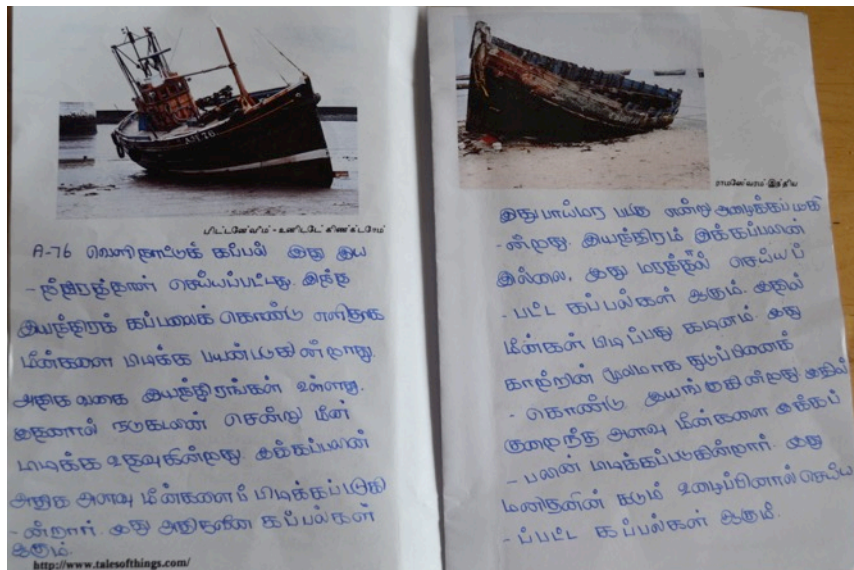 AH 76
பிட்டன்வீம் - உனிடடே் கிண்க்டாேம்
A-76 வெளிநாட்டுக் கப்பல் இது இய
- ந்திரத்தான் செய்யப்பட்டது. இந்த
இயந்திரக் கப்பலைக் கொண்டு எளிதாக
மீன்களை பிடிக்க பயன்படுகின்றாது.
அதிக வகை இயந்திரங்கள் உள்ளது.
இதனால் நடுகடலின் சென்று மீன்
பிடிக்க உதவுகின்றது. இக்கப்பலின்
அதிக அளவு மீன்களைப் பிடிக்கப்படுகி
- ன்றார். இது அதிநவீன கப்பல்கள்
ஆகும்.
http://www.talesofthings.com/
ராமனேேவரம்-இந்திய
இது பாய்மர படகு என்று அழைக்கப்படுகி
- ன்றது. இயந்திரம் இக்கப்பலின்
இல்லை, இது மரத்தில் செய்யப்
- பட்ட கப்பல்கள் ஆகும். இதில்
மீன்கள் பிடிப்பது கடினம். இது
காற்றின் மூலமாக துடுப்பினைக்
- கொண்டு இயங்குகின்றது இதில்
குறைந்த அளவு மீன்களை இக்கப்
- பலின் பிடிக்கப்படுகின்றார். இது
மனிதனின் கடும் உழைப்பினால் செய்ய
- ப்பட்ட கப்பல்கள் ஆகும்.